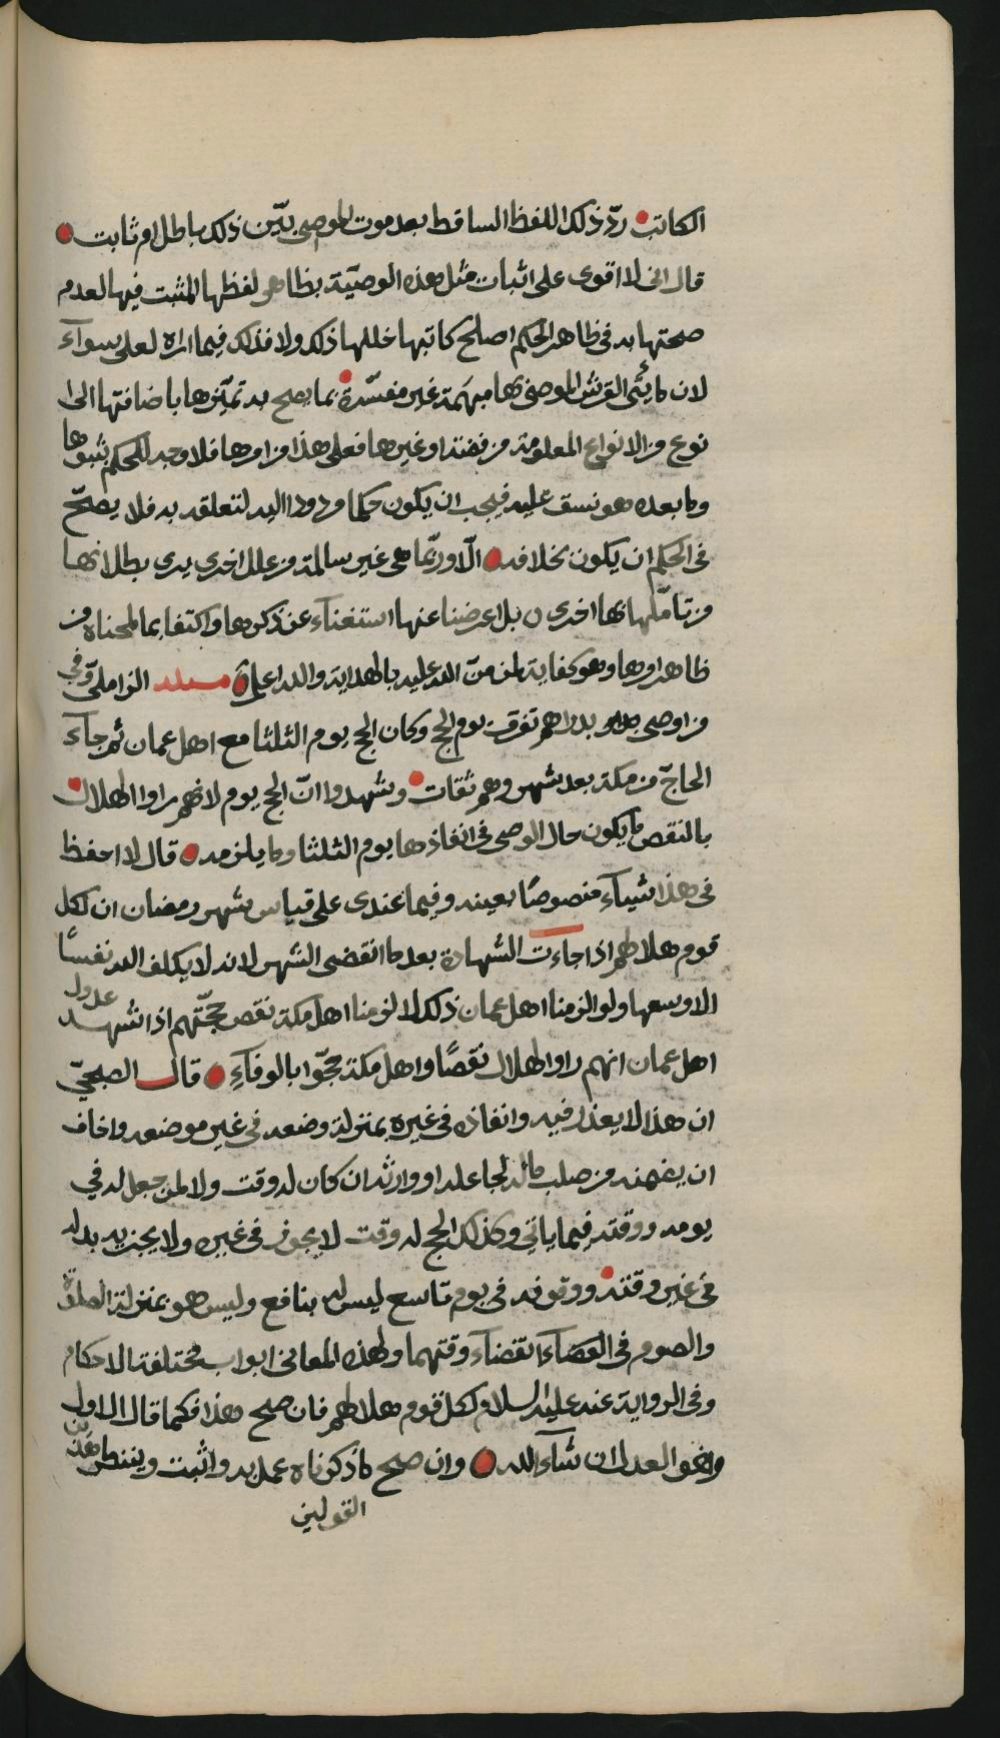 الكاتب ردّ ذلك اللفظ الساقط بعد موت الموصي بيّن ذلك باطل ام ثابت
قال اني لا اقوى على اثبات مثل هذه الوصيّة بظاهر لفظها المثبت فيها لعدم
صحتها به في ظاهر الحكم اصلح كاتبها خللها ذلك ولا فذلك فيما اراه لعلى سوآء
لان مايتى القرش الموصى بها مبهمة غير مفسّرة بما يصح به تميّزها باضافتها الى
نوع من الانواع المعلومة من فضة او غيرها فعلى هذا من امرها فلا وجه للحكم بثبوتها
وما بعده هو نسق عليه فيجب ان يكون حكما مردودا اليه لتعلقه به فلا يصحّ
في الحكم ان يكون بخلافه الّا وربّما هي غير سالمة من علل اخرى يدرى بطلانها
من تاملها بها اخرى بل اعرضنا عنها استغنآء عن ذكرها واكتفا بما لمحناه من
ظاهر امرها وهو كفاية لمن منّ الله عليه بالهداية والله اعلم مسئلة الزاملي وفي
من اوصى بدراهم تفرق يوم الحج وكان الحج يوم الثلثا مع اهل عمان ثم جآء
الحاجّ من مكة بعد شهر وهم ثقات وشهدوا انّ الحج يوم لانهم راوا الهلال
بالنقص ما يكون حال الوصي في انفاذها يوم الثلثا وما يلزمه قال لا احفظ
في هذا شيآء منصوصًا بعينه وفيما عندي على قياس شهر رمضان ان لكل
قوم هلالهم اذا جاءت الشهادة بعد ما انقضى الشهر لانه لا يكلف الله نفسًا
الا وسعها ولو الزمنا اهل عمان ذلك لالزمنا اهل مكة نقص حجّتهم اذا شهد عدول
اهل عمان انهم راوا الهلال نقصًا واهل مكة حجّوا بالوفآء قال الصبحيّ
ان هذا لا يعذر فيه وانفاذه في غيره بمنزلة وضعه في غير موضعه واخاف
ان يضمنه من صلب ماله لجاعله او وارثه ان كان له وقت ولا لمن جعل له في
يومه ووقته فيما ياتي وكذلك الحج له وقت لا يجوز في غيره ولا يجزيه بدله
في غير وقته ووقوفه في يوم تاسع ليس له بنافع وليس هو بمنزلة الصلوة
والصوم في القضآء انقضآء وقتهما ولهذه المعاني ابواب مختلفة الاحكام
وفي الرواية عنه عليه السلام لكل قوم هلالهم فان صح هذا فكما قال الاول
وهو العدل ان شآء الله وان صح ما ذكرناه عمل به واثبت وينظر هذين
القولين